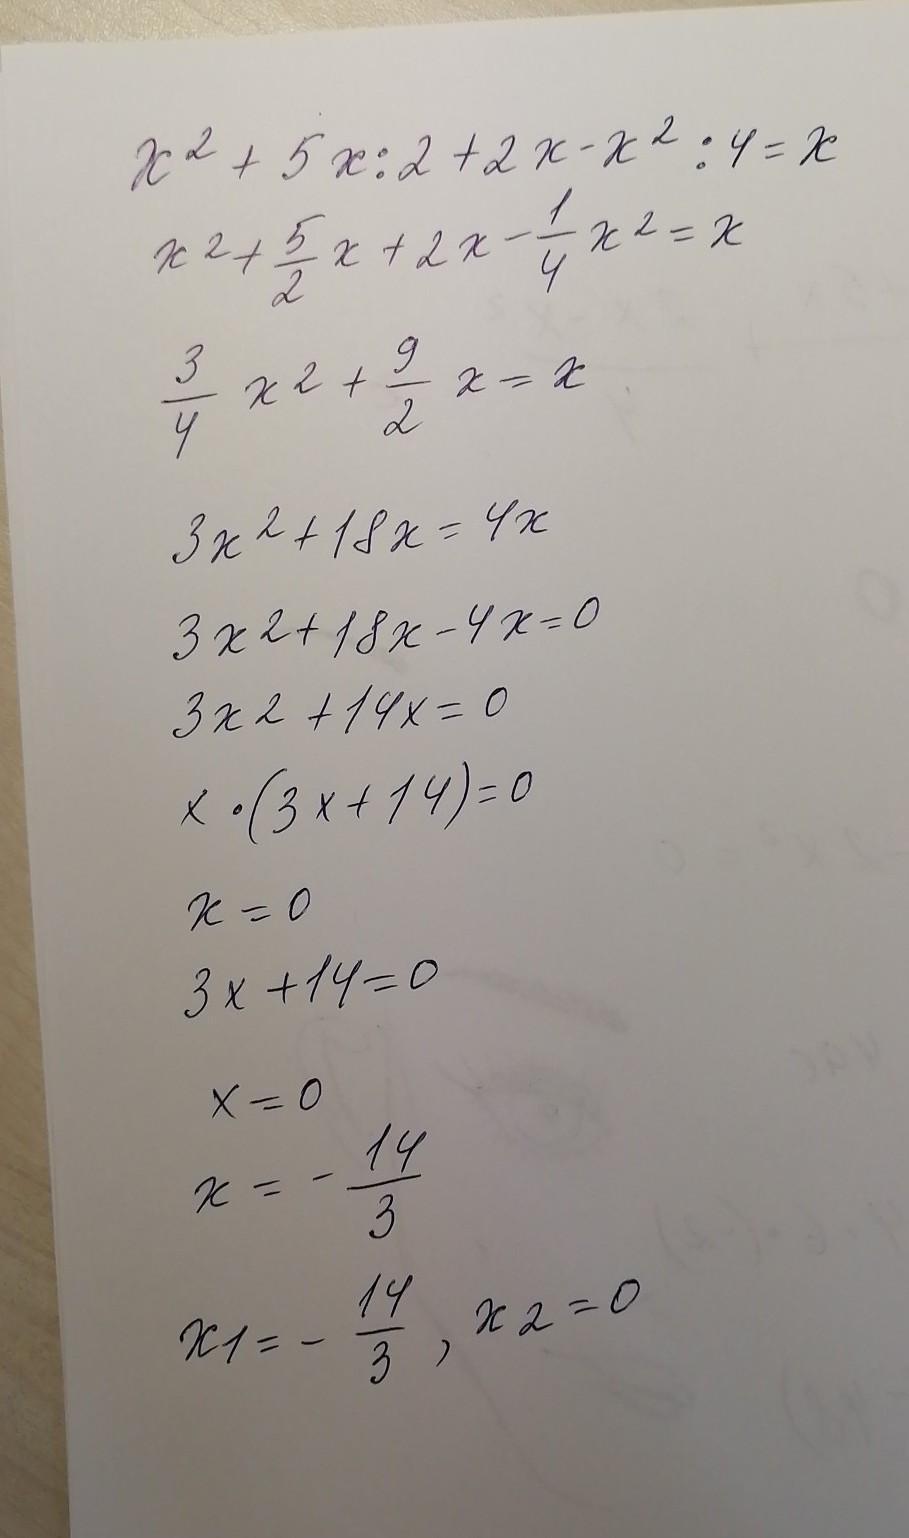 x² + 5x:2 + 2x - x² : 4 = x
x² + 5/2 x + 2x - 1/4 x² = x
3/4 x² + 9/2 x = x
3x² + 18x = 4x
3x² + 18x - 4x = 0
3x² + 14x = 0
x · (3x + 14) = 0
x = 0
3x + 14 = 0
x = 0
x = - 14/3
x1 = - 14/3 , x2 = 0